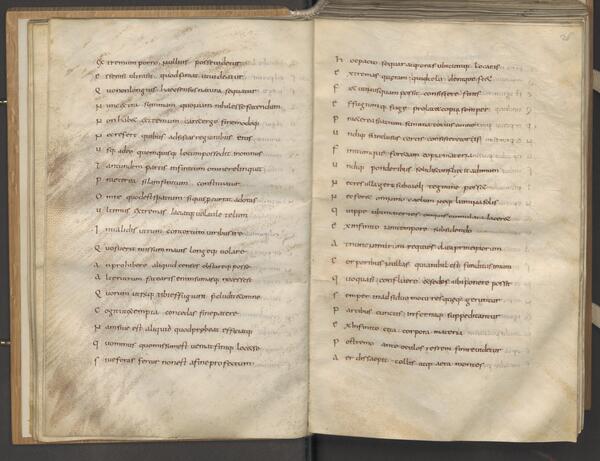 Extremum porro nullius posse videtur
Esse nisi ultra quod finiat ut videatur
Quo non longius haec sensus natura sequatur
Nunc extra summam quoniam nihil esse fatendum
Non habet extremum caret ergo fine modoq
Nec refert quibus adsistas regionibus eius
Usq adeo quem quisq locum possedit in omnis
Tantundem partis infinitum omne relinquit
Praeterea si iam finitum constituatur
Omne quod est spatium siquis procurrat ad oras
Ultimus extremas iaciatq volatile telum
Invalidis utrum contortum viribus ire
Quo fuerit missum mavis longeq volare
An prohibere aliquid censes obstareq posse
Alterutrum fatearis enim sumasq necesse
Quorum utrumq tibi effugium praecludit et omne
Cogit ut exempta concedas fine patere
Nam sive est aliquid quod probeat efficiatq
Quominus quo missum est veniat finiq locet se
Sive foras fertur non est a fine profectum
Hoc pacto sequar atq oras ubicumq locaris
Extremas quaeram quid telo deniq fiet
Fiet uti nusquam possit consistere finis
Effugiumq fugae prolatet copia semper
Praeterea spatium summai totius omne
Undiq si inclusum certis consisteret oris
Finitumq foret iam copia materiai
Undiq ponderibus solidis confluxet ad imum
Nec res ulla geri sub caeli tegmine posset
Nec foret omnino caelum neq lumina solis
Quippe ubi materies omnis cumulata iaceret
Ex infinito iam tempore subsidendo
At nunc nimirum requies data principiorum
Corporibus nullast quia nihil est funditus imum
Quo quasi confluere et sedes ubi ponere possit
Semper in adsiduo motu res quaeq geruntur
Partibus cunctis infernaq suppeditantur
Ex infinito cita corpora materiai
Postremo ante oculos rem finire videtur
Aer dissaepit collis atq aera montes